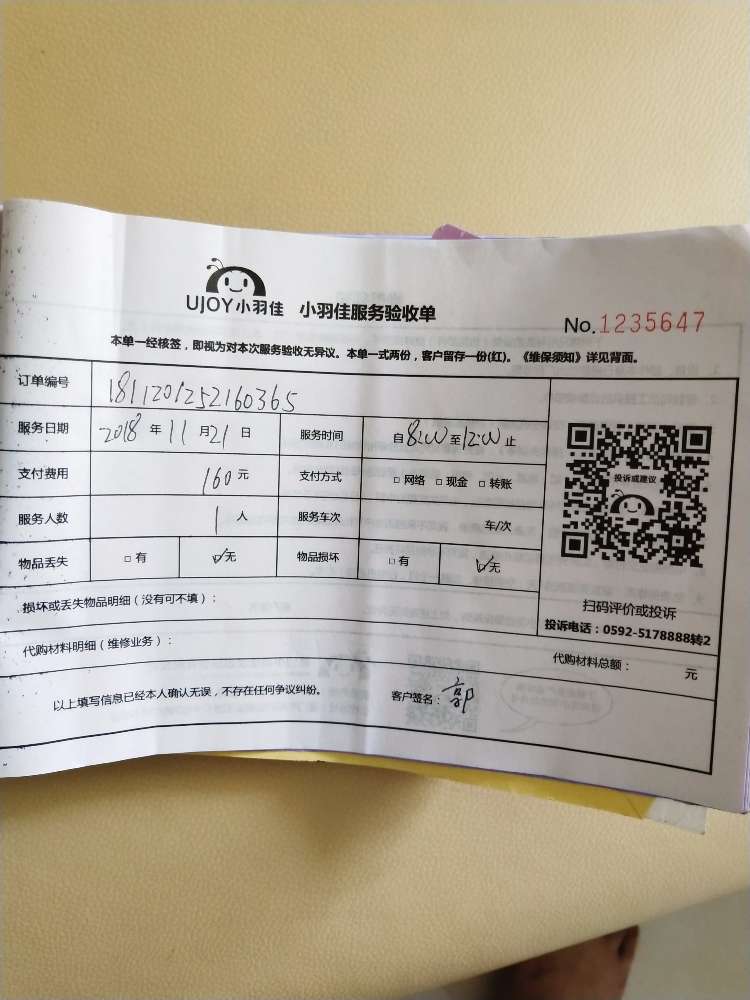 UJOY小羽佳 小羽佳服务验收单
No.1235647
本单一经核签，即视为对本次服务验收无异议。本单一式两份，客户留存一份(红)。《维保须知》详见背面。
订单编号 1811201252160365
服务日期 2018 年 11 月 21 日 服务时间 自 8:00 至 12:00 止
支付费用 160 元 支付方式 □ 网络 □ 现金 □ 转账
服务人数 1 人 服务车次 车/次
物品丢失 □ 有 ☑ 无 物品损坏 □ 有 ☑ 无
投诉或建议
扫码评价或投诉
投诉电话：0592-5178888转2
损坏或丢失物品明细（没有可不填）：
代购材料明细（维修业务）： 代购材料总额： 元
以上填写信息已经本人确认无误，不存在任何争议纠纷。 客户签名：